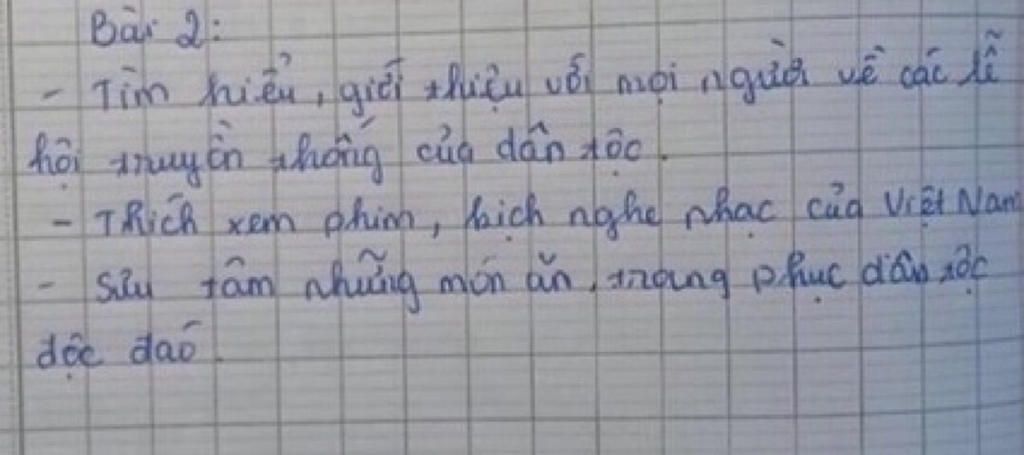 Bài 2:
- Tìm hiểu, giới thiệu với mọi người về các lễ
hội truyền thống của dân tộc.
- Thích xem phim, kịch nghe nhạc của Việt Nam
- Sưu tầm những món ăn, trang phục dân tộc
độc đáo.